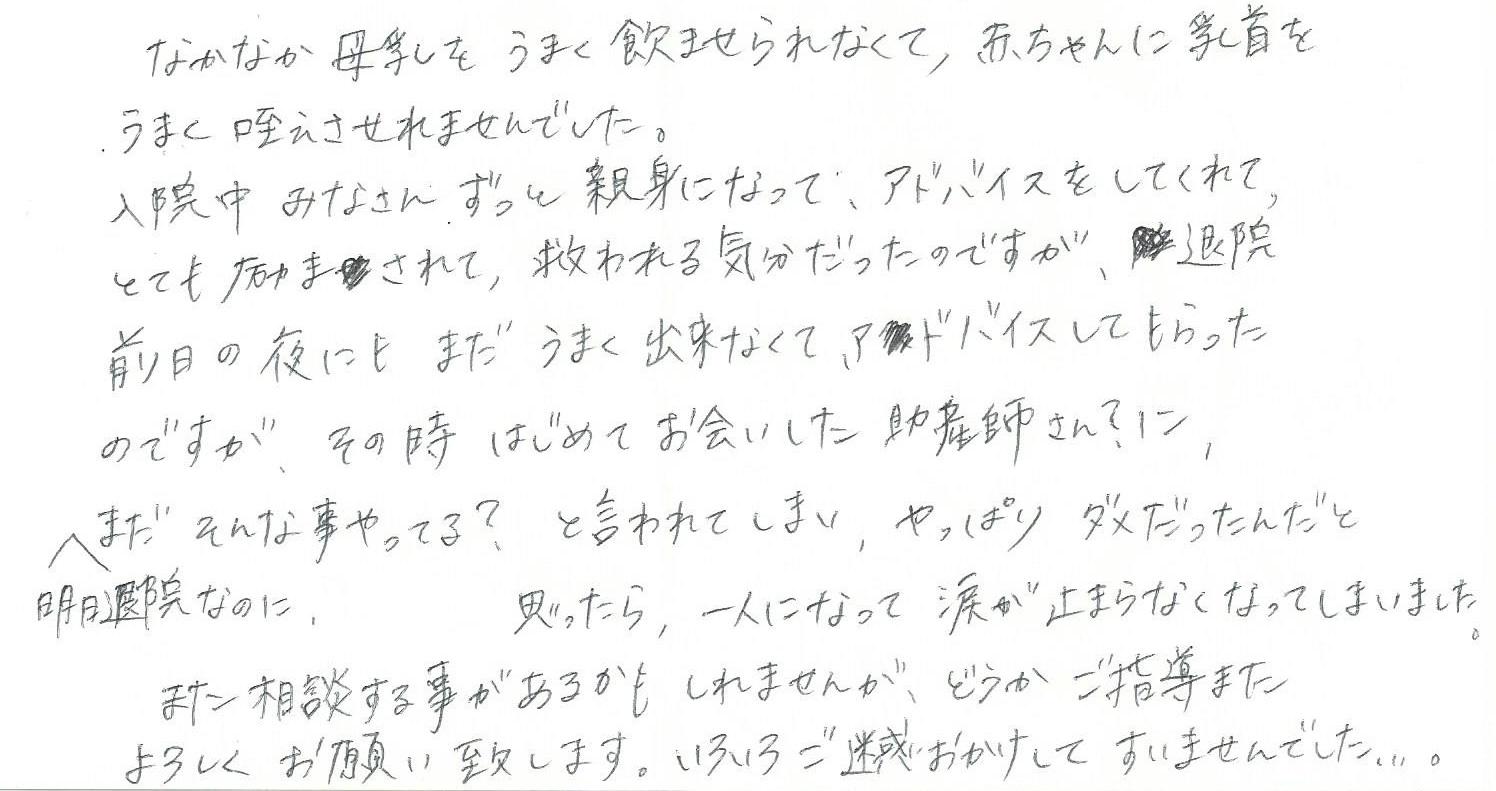 なかなか 母乳を うまく 飲ませられなくて, 赤ちゃんに 乳首を
うまく 咥えさせれませんでした。
入院中 みなさん ずっと 親身になって、アドバイスをしてくれて,
とても 励まされて, 救われる気分だったのですが、退院
前日の 夜にも まだ うまく 出来なくて、アドバイスしてもらった
のですが、その時 はじめて お会いした 助産師さん?に,
まだ そんな事やってる? と言われてしまい, やっぱり ダメだったんだと
明日退院なのに, 思ったら, 一人になって 涙が 止まらなくなってしまいました。
また 相談する事があるかも しれませんが、どうか ご指導また
よろしく お願い 致します。いろいろ ご迷惑おかけして すいませんでした...。